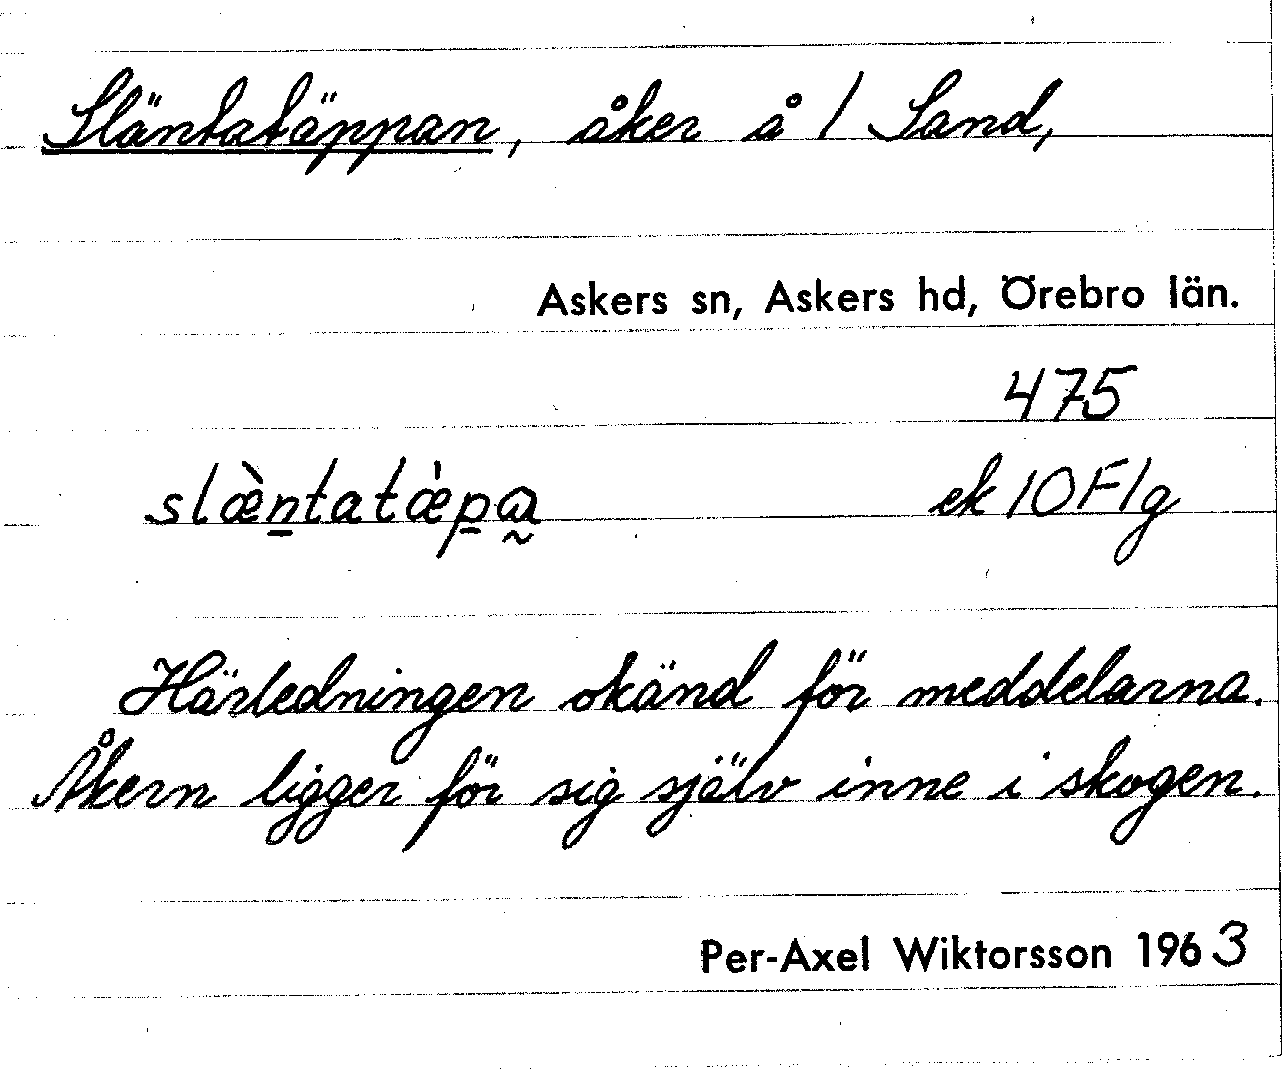 Släntatäppan, åker å / Sand,
Askers sn, Askers hd, Örebro län.
475
slæ̀ṉtatæ̀p̱a̰ ek 10F1g
Härledningen okänd för meddelarna.
Åkern ligger för sig själv inne i skogen.
Per-Axel Wiktorsson 1963